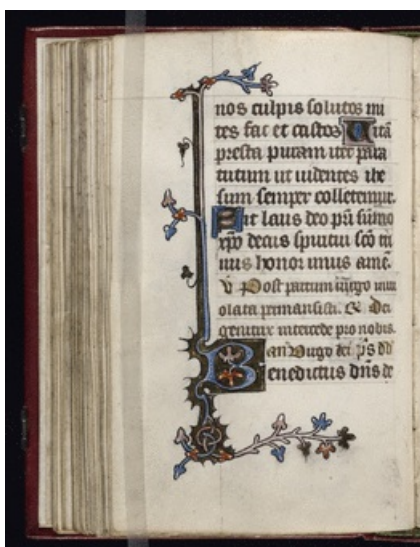 nos culpis solutos mi
tes fac et castos Uitā
presta puram iter para
tutum ut uidentes ihe
sum semper colletemur.
Sit laus deo pr̄i sūmo
xp̄o decus spiritui scō tri
nus honor unus amē.
V Post partum uirgo inui
olata permansisti. R Dei
genitrix intercede pro nobis.
an Uirgo dei ps dd
Benedictus dn̄s de